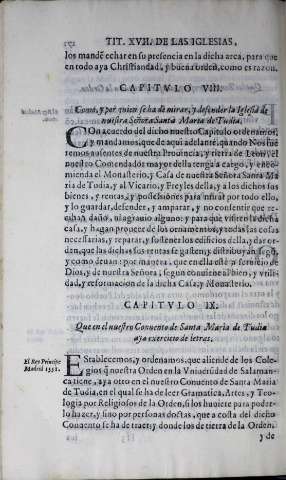 TIT. XVII. DE LAS IGLESIAS,
los mandẽ echar en su presencia en la dicha arca, para que
en todo aya Christiandad, y buena orden, como es razon.
CAPITVLO VIII.
Como, y por quien se ha de mirar, y defender la Iglesia de
nuestra Señora Santa Maria de Tudia.
COn acuerdo del dicho nuestro Capitulo ordenamos,
y mandamos, que de aqui adelante, quando Nos fue
remos ausentes de nuestra Prouincia, y tierra de Leon, el
nuestro Comendador mayor della tenga a cargo, y enco-
mienda el Monasterio, y Casa de nuestra Señora Santa Ma
ria de Tudia, y al Vicario, y Freyles della, y a los dichos sus
bienes, y rentas, y possessiones para mirar por todo ello,
y lo guardar, defender, y amparar, y no consentir que re-
ciban daño, ni agrauio alguno: y para que visiten la dicha
casa, y hagan proueer de los ornamentos, y todas las cosas
necessarias, y reparar, y sostener los edificios della, y dar or-
den, que las dichas sus rentas se gasten, y distribuyan segũ,
y como deuan: por manera, que en ella estè a seruicio de
Dios, y de nuestra Señora, segun conuiene al bien, y vtili-
dad, y reformacion de la dicha Casa, y Monasterio.
CAPITVLO IX.
Que en el nuestro Conuento de Santa Maria de Tudia
aya exercicio de letras.
El Rey Principe
Madrid 1551.
EStablecemos, y ordenamos, que allende de los Cole-
gios q̃ nuestra Orden en la Vniuersidad de Salaman-
ca tiene, aya otro en el nuestro Conuento de Santa Maria
de Tudia, en el qual se ha de leer Gramatica, Artes, y Teo-
logia por Religiosos de la Orden, si los huuiere para poder-
lo hazer, y sino por personas doctas, que a costa del dicho
Conuento se ha de traer; y donde los de tierra de la Orden,
y de